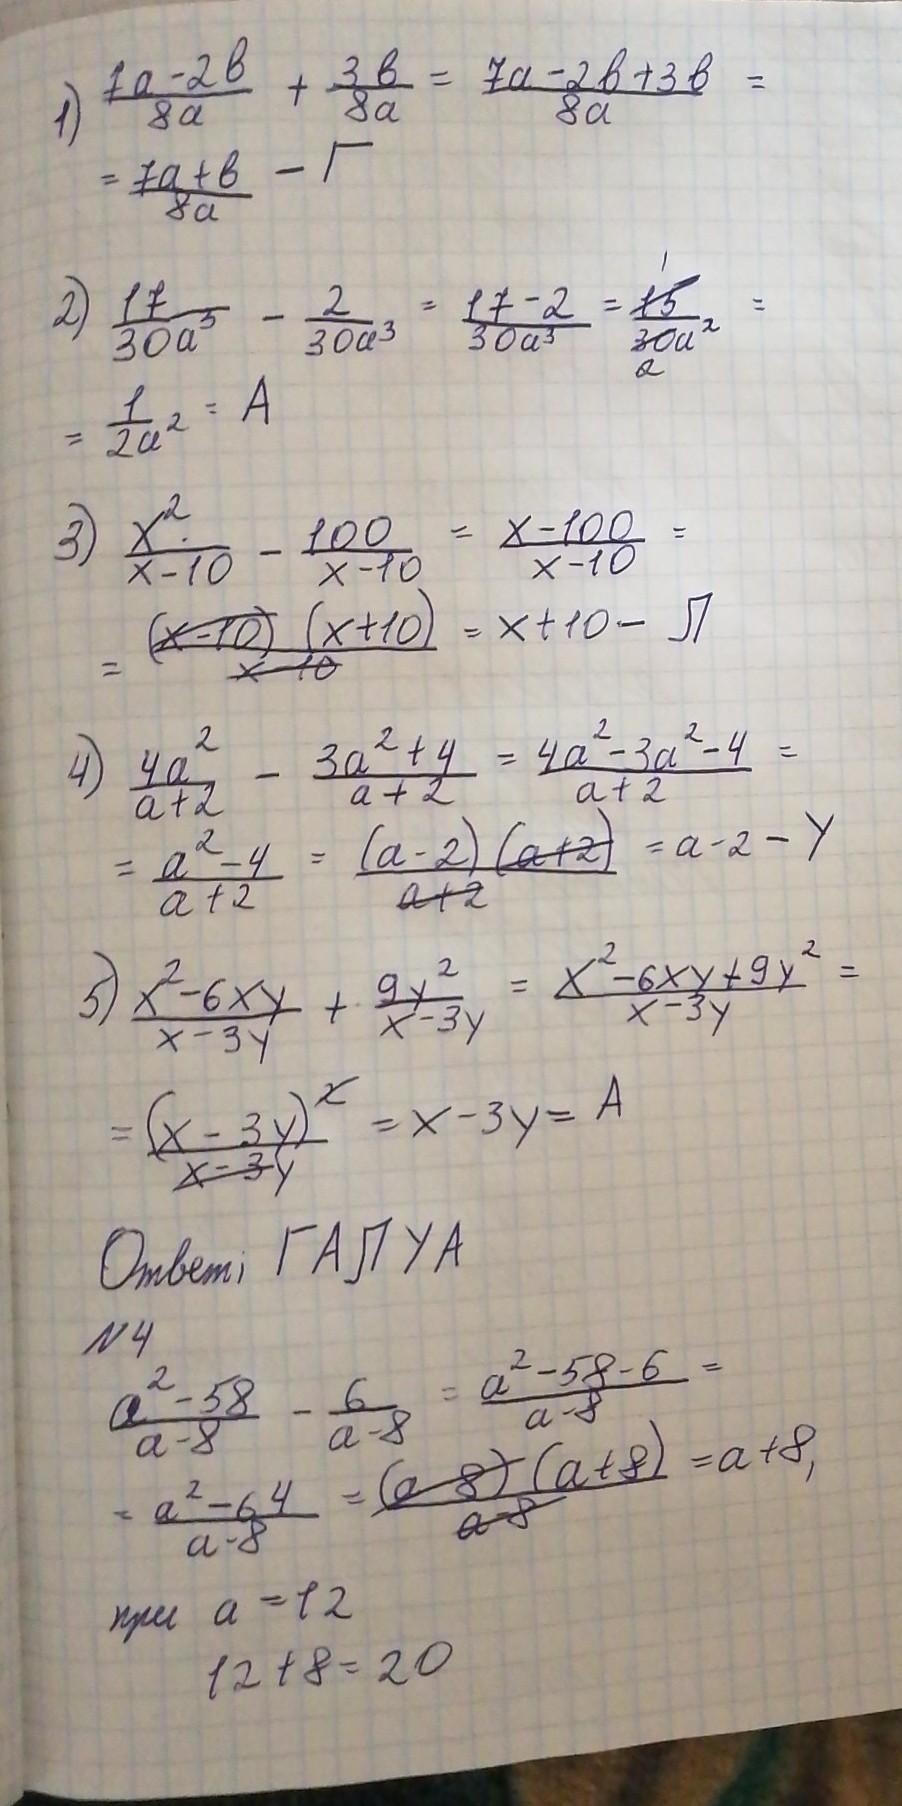 1) (7a-2b)/(8a) + (3b)/(8a) = (7a-2b+3b)/(8a) =
= (7a+b)/(8a) - Г
2) 17/(30a³) - 2/(30a³) = (17-2)/(30a³) = 15/(30a²) = 1 2
= 1/(2a²) = А
3) x²/(x-10) - 100/(x-10) = (x-100)/(x-10) =
= ((x-10)(x+10))/(x-10) = x+10 - Л
4) 4a²/(a+2) - (3a²+4)/(a+2) = (4a²-3a²-4)/(a+2) =
= (a²-4)/(a+2) = ((a-2)(a+2))/(a+2) = a-2 - У
5) (x²-6xy)/(x-3y) + 9y²/(x-3y) = (x²-6xy+9y²)/(x-3y) =
= (x-3y)²/(x-3y) = x-3y = А
Ответ: ГАЛУА
№4
(a²-58)/(a-8) - 6/(a-8) = (a²-58-6)/(a-8) =
= (a²-64)/(a-8) = ((a-8)(a+8))/(a-8) = a+8,
при a=12
12+8=20